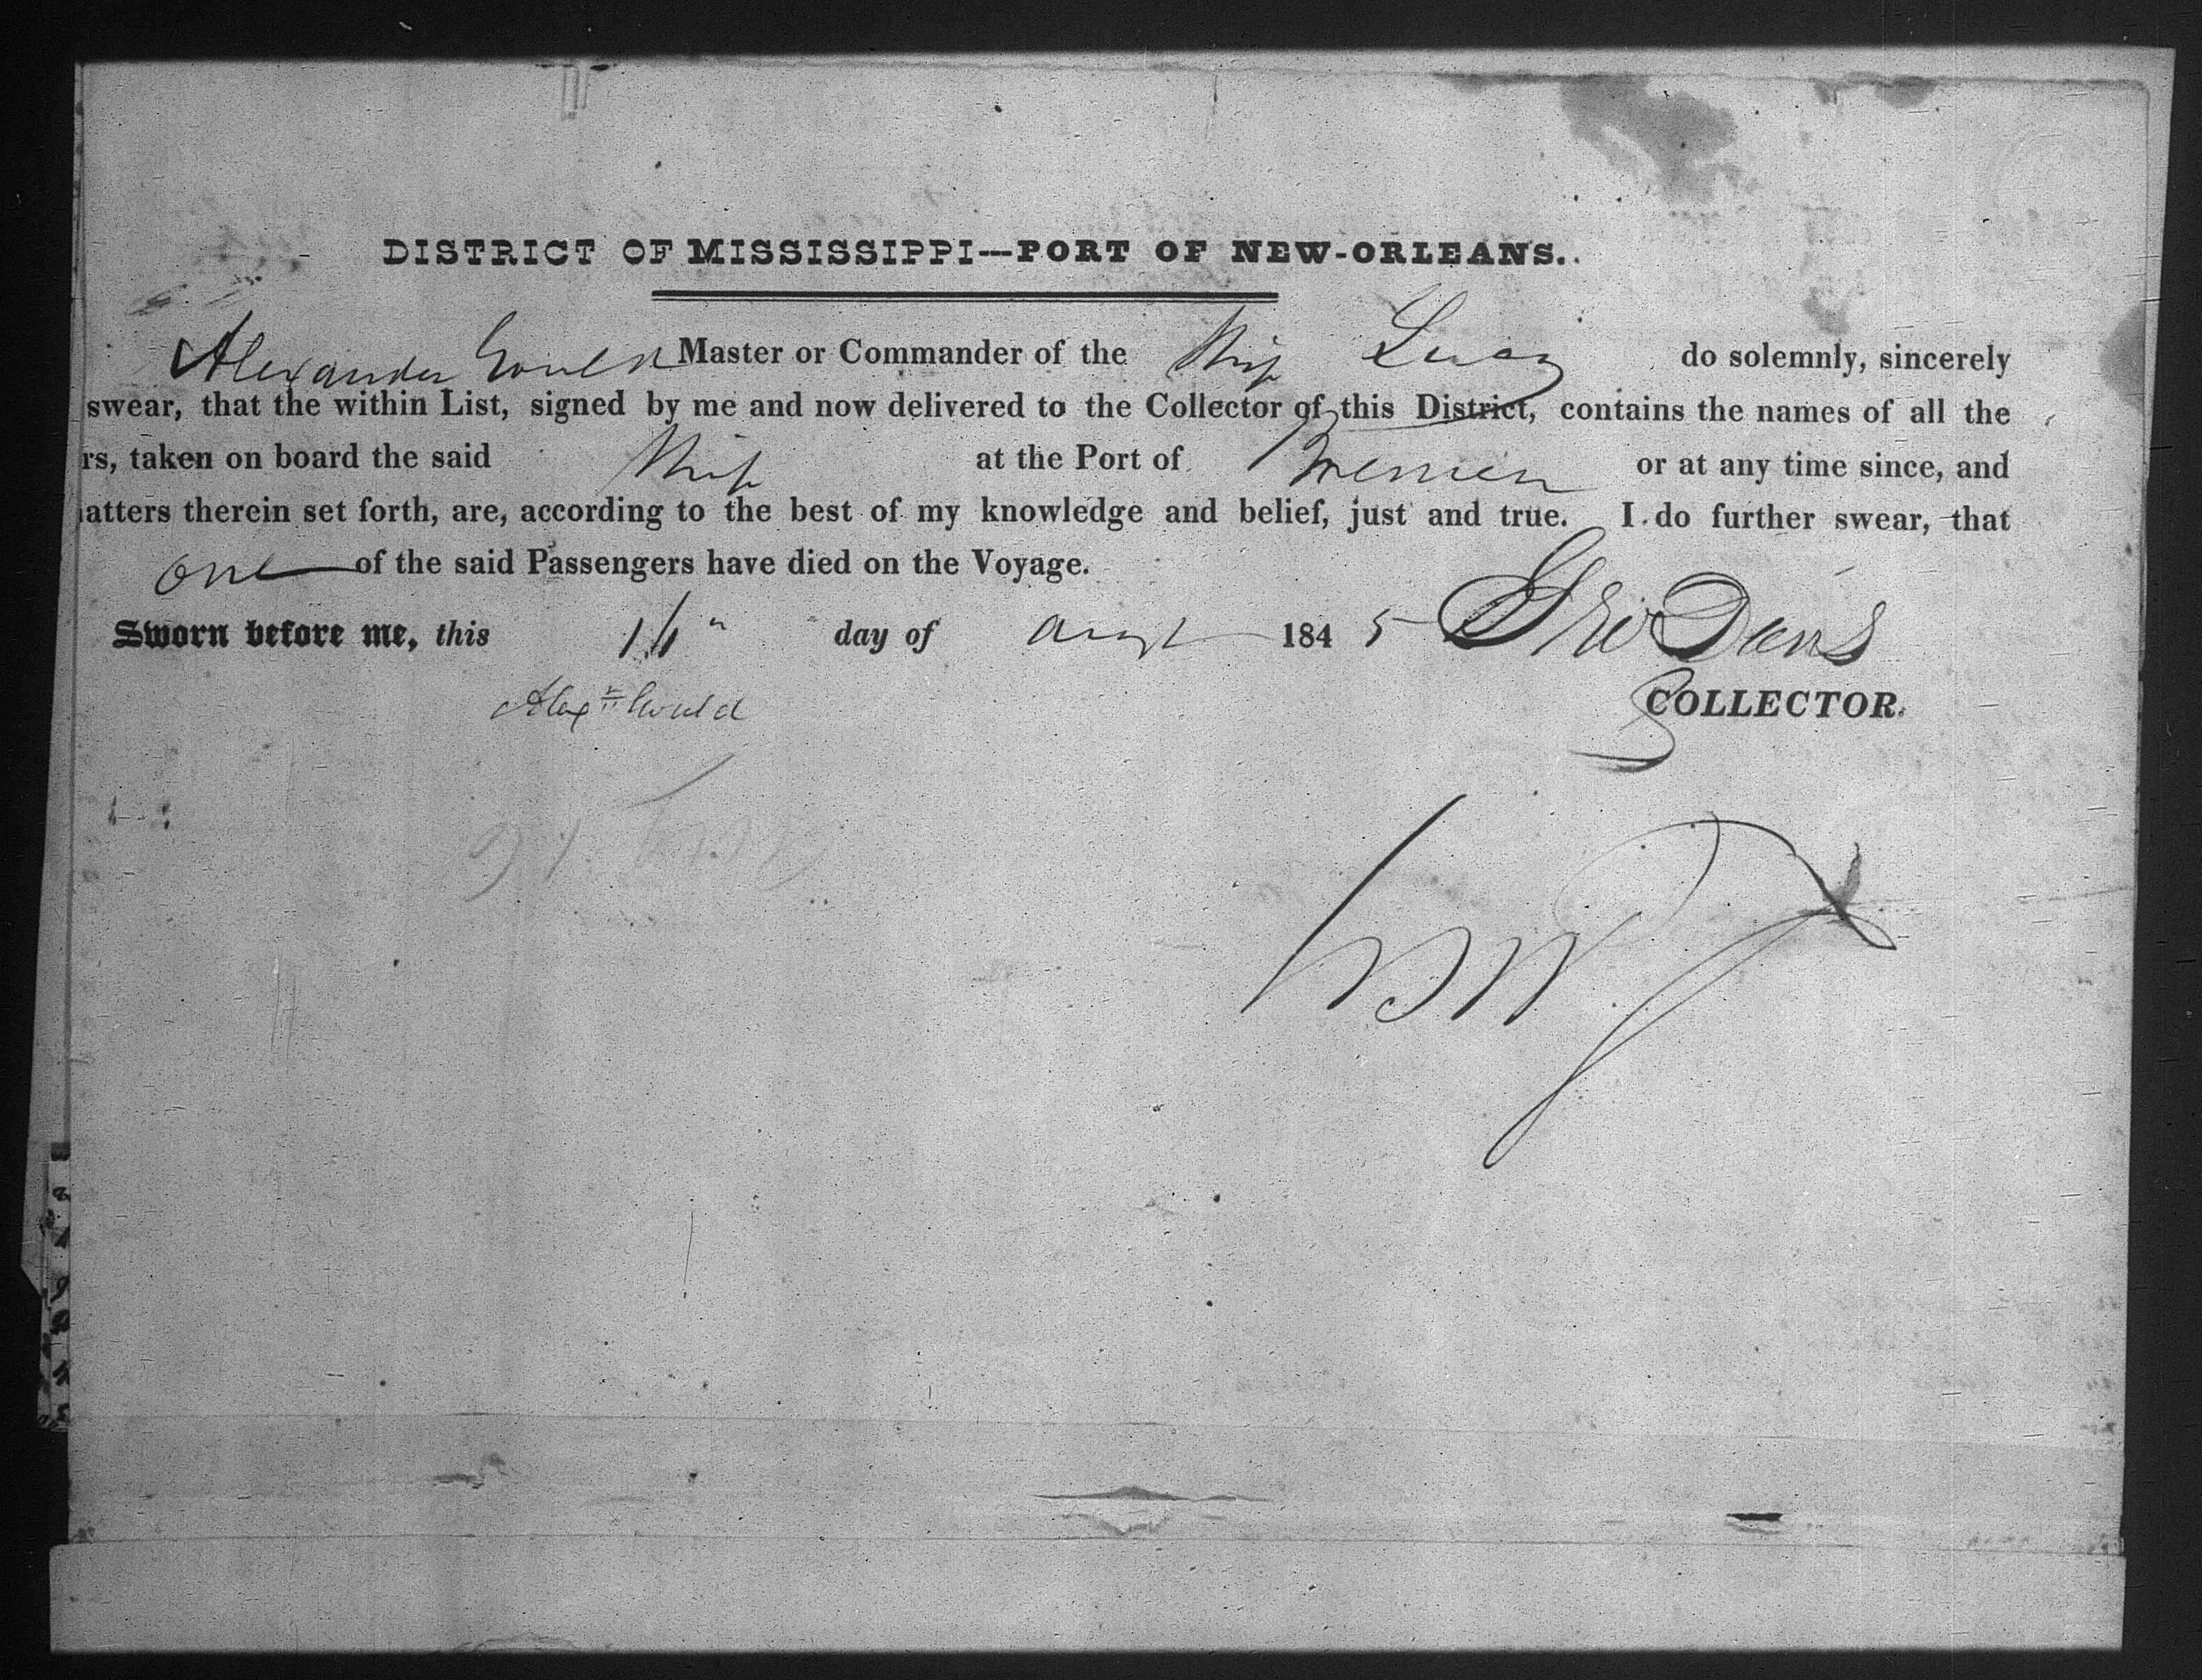 DISTRICT OF MISSISSIPPI---PORT OF NEW-ORLEANS.
Alexander Gould Master or Commander of the Ship do solemnly, sincerely
swear, that the within List, signed by me and now delivered to the Collector of this District, contains the names of all the
rs, taken on board the said Ship at the Port of Bremen or at any time since, and
atters therein set forth, are, according to the best of my knowledge and belief, just and true. I do further swear, that
one of the said Passengers have died on the Voyage.
Sworn before me, this day of Augt 1845
Alexr Gould
COLLECTOR.